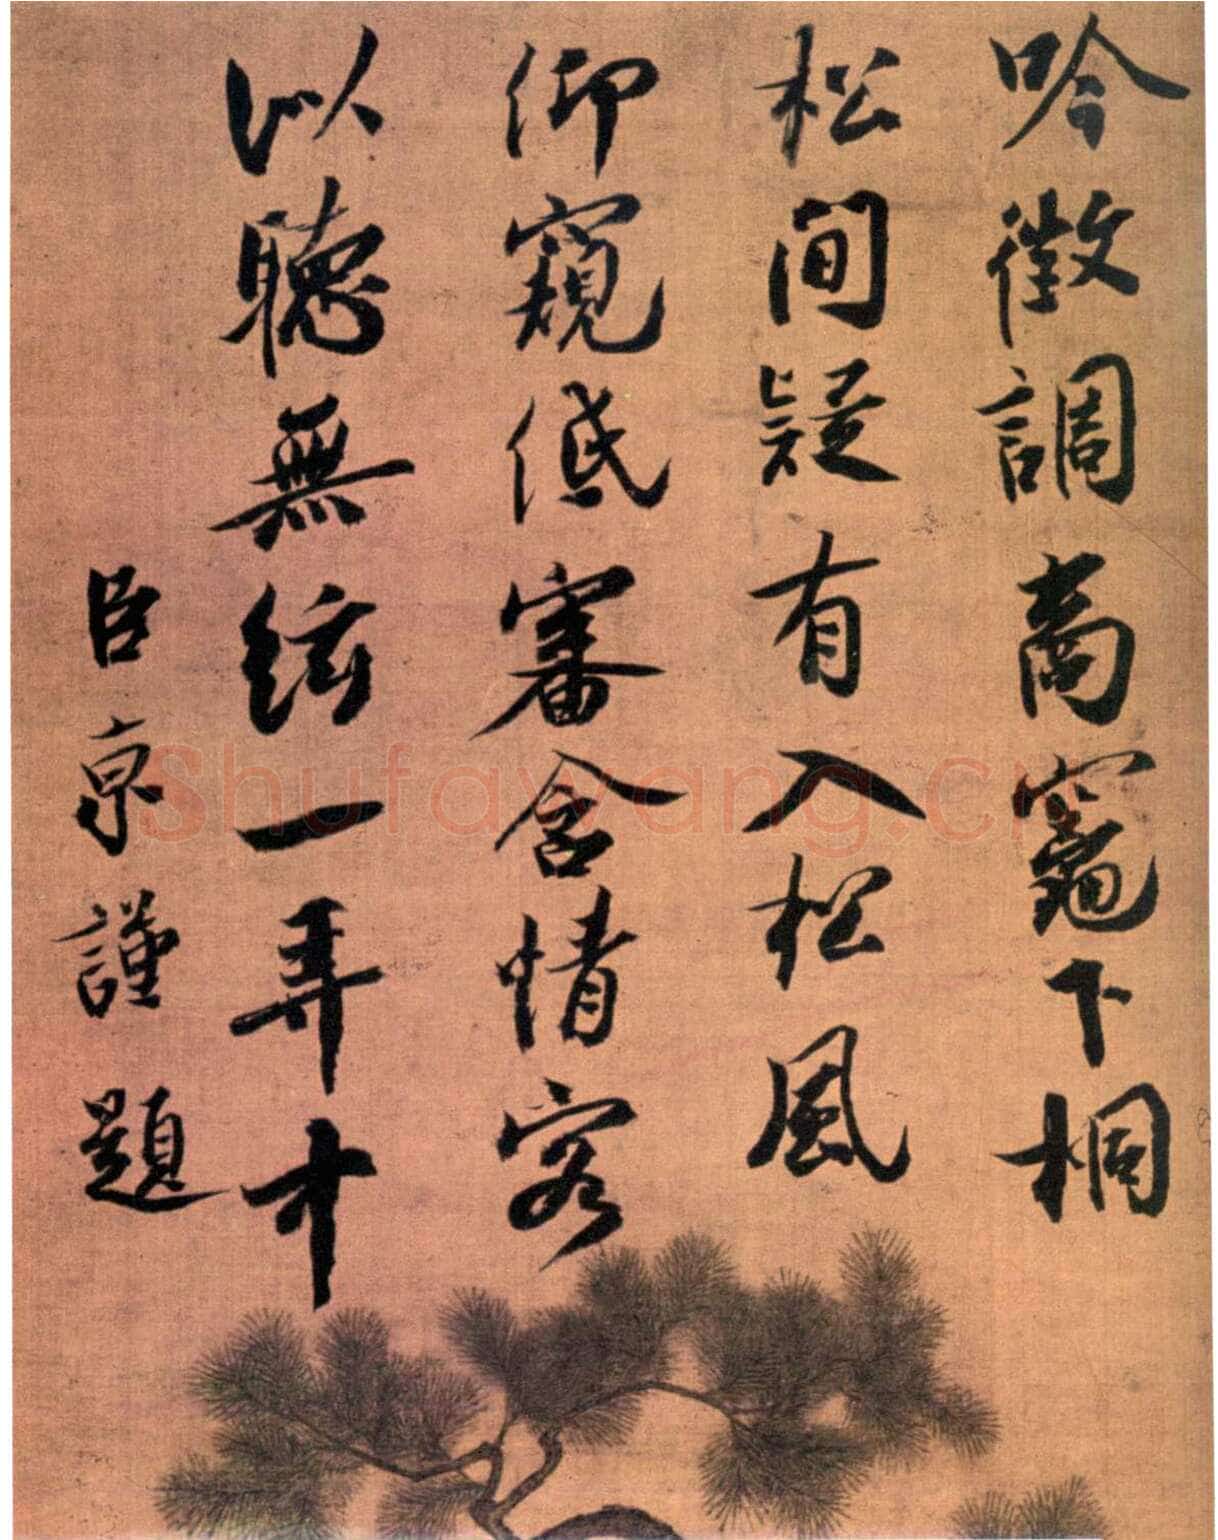 吟徵調商竈下桐
松間疑有入松風
仰窺低審含情客
以聽無絃一弄中
臣京謹題
shufawang.cn